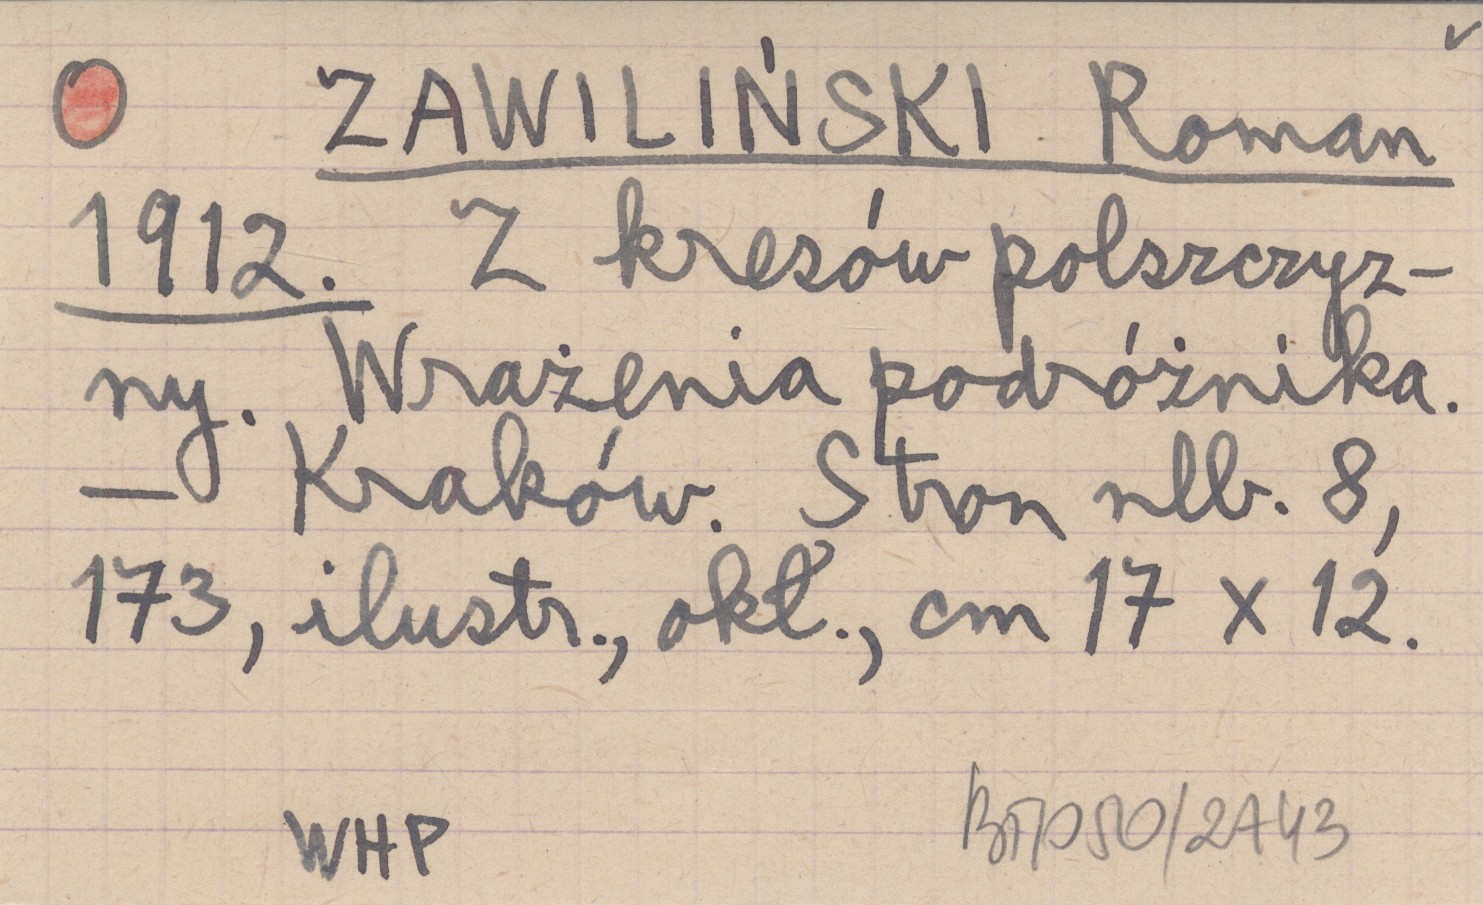 ZAWILIŃSKI Roman
1912. Z kresów polszczyz-
ny. Wrażenia podróżnika.
— Kraków. Stron nlb. 8,
173, ilustr., okł., cm 17 x 12.
WHP